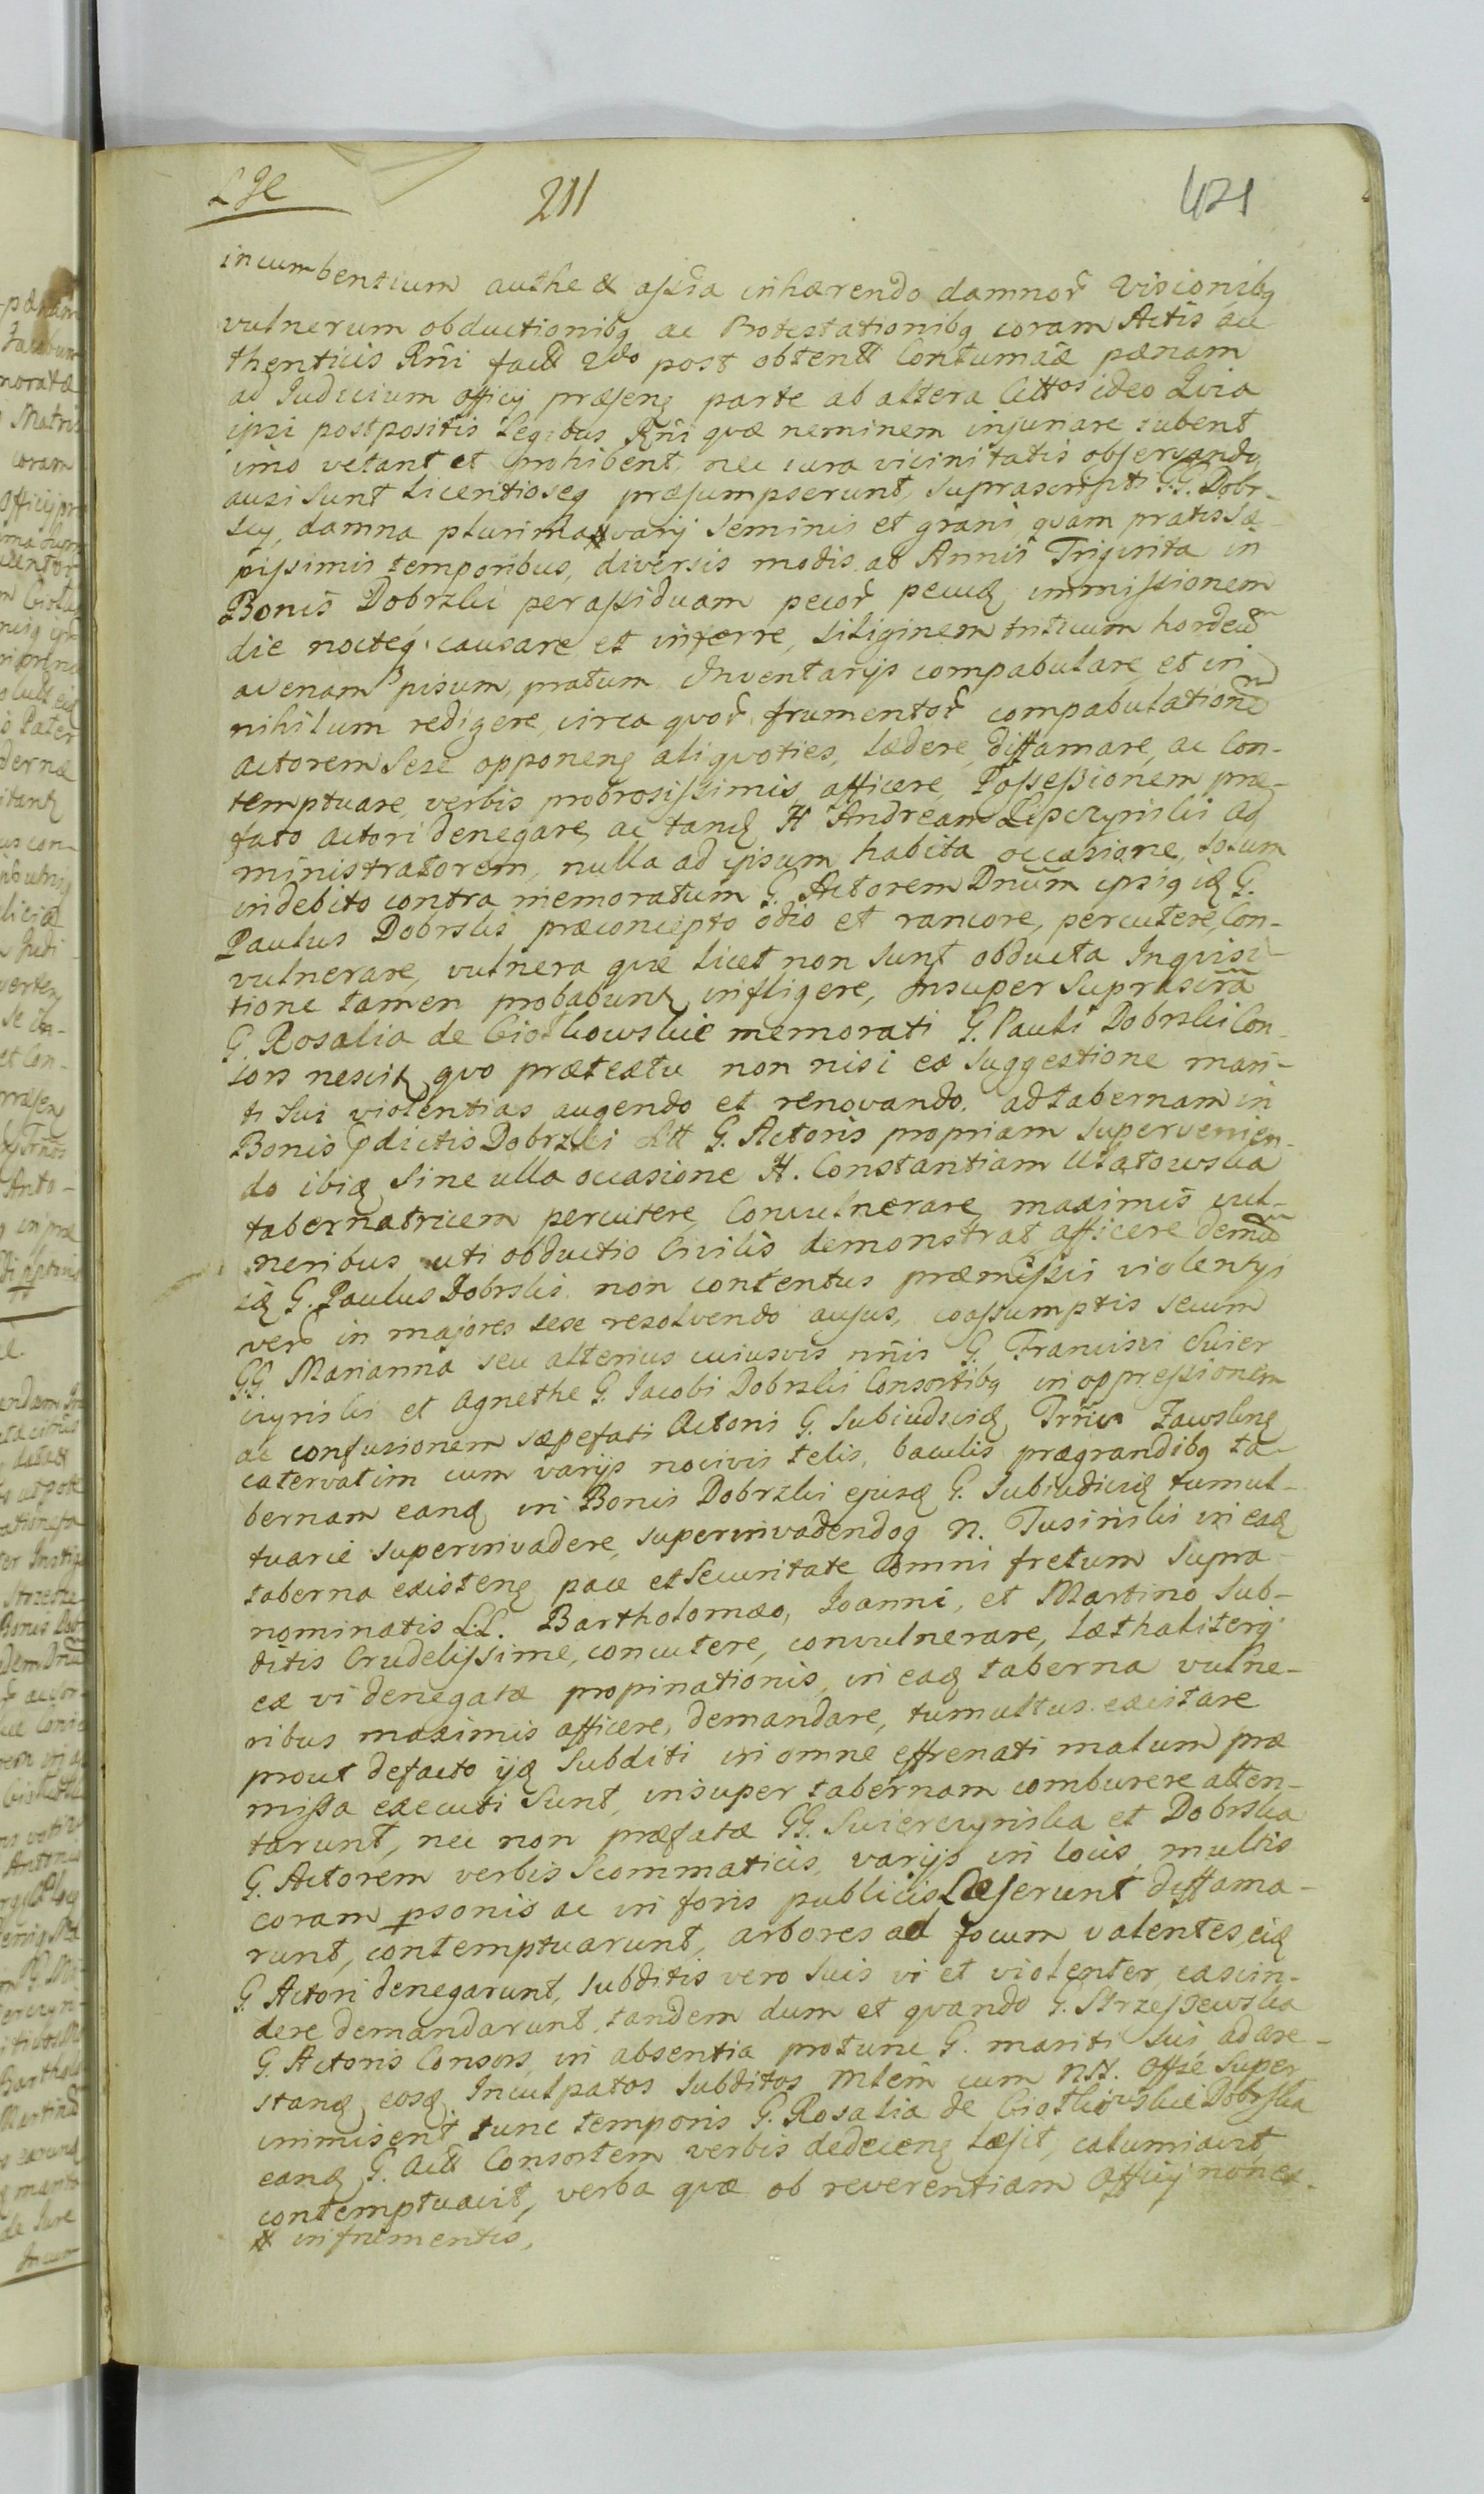 LJe 211 421
incumbentium authe & asstia inhærendo damnor̃ Visionibq
vulnerum obductionibq ac Protestationibq coram Actis au
thenticis Rñi factt 2do post obtentt Contumâæ pænam
ad Judicium officij præsenq parte ab altera Cittos ideo Quia
ipsi postpositis Legibus Rñi quæ neminem injuriare iubent
imo vetant et prohibent, nec iura vicinitatis observando
ausi sunt Licentioseq præsumpserunt, suprascripti GG. Dobr-
scy, damna plurima # varij seminis et grani quam pratis Sæ-
pissimis temporibus, diversis modis ab Annis Triginta in
Bonis Dobrzki per assiduam pecor̃ pecudq immissionem
die nocteq causare et inferre, siliginem triticum hordeũ
avenam pisum, pratum Inventarijs compabulare et in
nihilum redigere, circa quor̃ frumentor̃ compabulationẽ
actorem Sese opponenq aliquoties, lædere, diffamare, ac Con-
temptuare, verbis probrosissimis afficere, Possessionem præ-
fato actori denegare, ac tandq H Andream Lipczynski ad
ministratorem, nulla ad ipsum habita occasione, solum
indebito contra memoratum G. Actorem Dnũm ipsiq idq G.
Paulus Dobrski præconcepto odio et rancore, percutere, Con-
vulnerare, vulnera quæ licet non sunt obducta Inquisi-
tione tamen probabunt, infligere, Insuper Suprascrĩa
G. Rosalia de Ciotkowskie memorati G. Pauli Dobrski Con-
sors nescit quo prætextu non nisi ex suggestione mari-
ti sui violentias augendo et renovando. ad tabernam in
Bonis pdictis Dobrzki Att G. Actoris propriam supervenien-
do ibiq sine ulla occasione H. Constantiam Ulatowska
tabernatricem percutere, Convulnerare, maximis vul-
neribus, uti obductio Civilis demonstrat afficere demũ
idq G. Paulus Dobrski non contentus præmissis violentijs
vero in majores sese resolvendo ausus, coassumptis secum
GG. Marianna seu alterius cuiusvis nñis G. Francisci Swier
czynski et Agnethe G. Jacobi Dobrzki Consortibq in oppressionem
ac confusionem sæpefati Actoris G. Subiudiciq Trñis Zawskenq
catervatim cum varijs nocivis telis, baculis prægrandibq ta-
bernam eandq in Bonis Dobrzki ejusdq G. Subiudiciq tumul-
tuarie superinvadere, superinvadendoq N. Tusinski in eadq
taberna existenq pace et Securitate omni fretum supra
nominatis LL. Bartholomæo, Joanni, et Martino, Sub-
ditis Crudelissime, concutere, convulnerare, læthaliterq
ex vi denegatæ propinationis, in eadq taberna vulne-
ribus maximis afficere, demandare, tumultus excitare
prout defacto ijdq Subditi in omne effrenati malum præ
missa executi sunt, insuper tabernam comburere atten-
tarunt, nec non præfatæ GG. Swierczynska et Dobrska
G. Actorem verbis Scommaticis, varijs in locis, multis
coram psonis ac in foris publicis Læserunt diffama-
runt, contemptuarunt, arbores ad focum valentes, eidq
G. Actori denegarunt, subditis vero suis vi et violenter excin-
dere demandarunt, tandem dum et quando G. Strzeszewska
G. Actoris Consors, in absentia protunc G. mariti sui, ad are-
standq eosdq Inculpatos subditos Mlem̃ cum NN. offse super
inmisent, tunc temporis G. Rosalia de Ciotkowskie Dobrska
eandq G. Actt Consortem verbis dedecenq læsit, calumiavit,
contemptuavit, verba quæ ob reverentiam officij non ex-
# in frumentis,